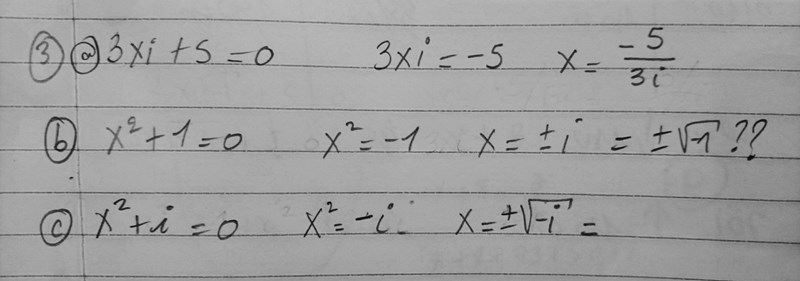 ③ ⓐ 3xi + 5 = 0 3xi = -5 x = -5/3i
ⓑ x² + 1 = 0 x² = -1 x = ± i = ± √-1 ??
ⓒ x² + i = 0 x² = -i x = ± √-i =